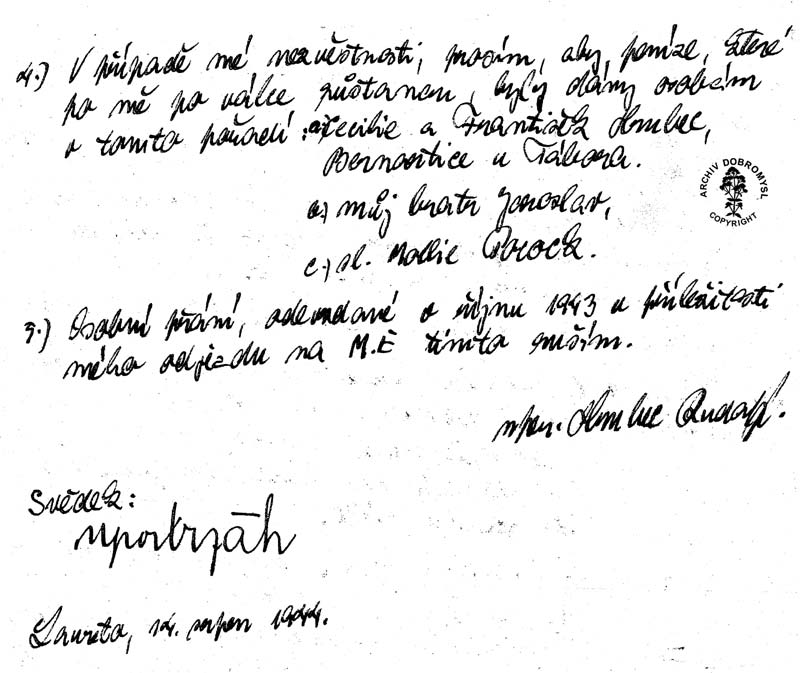 4.) V případě mé nezvěstnosti, prosím, aby, peníze, které
po mě po válce zůstanou, byly dány osobám
v tomto pořadí: a) Cecilie a František Hrubec,
Bernartice u Tábora.
b.) můj bratr Jaroslav,
c.) sl. Mollie Brock.
5.) Osobní přání, odevzdané v říjnu 1943 u příležitosti
mého odjezdu na M.E tímto ruším.
npor. Hrubec Rudolf.
Svědek:
Laurita, 14. srpen 1944.
ARCHIV DOBROMYSL
COPYRIGHT